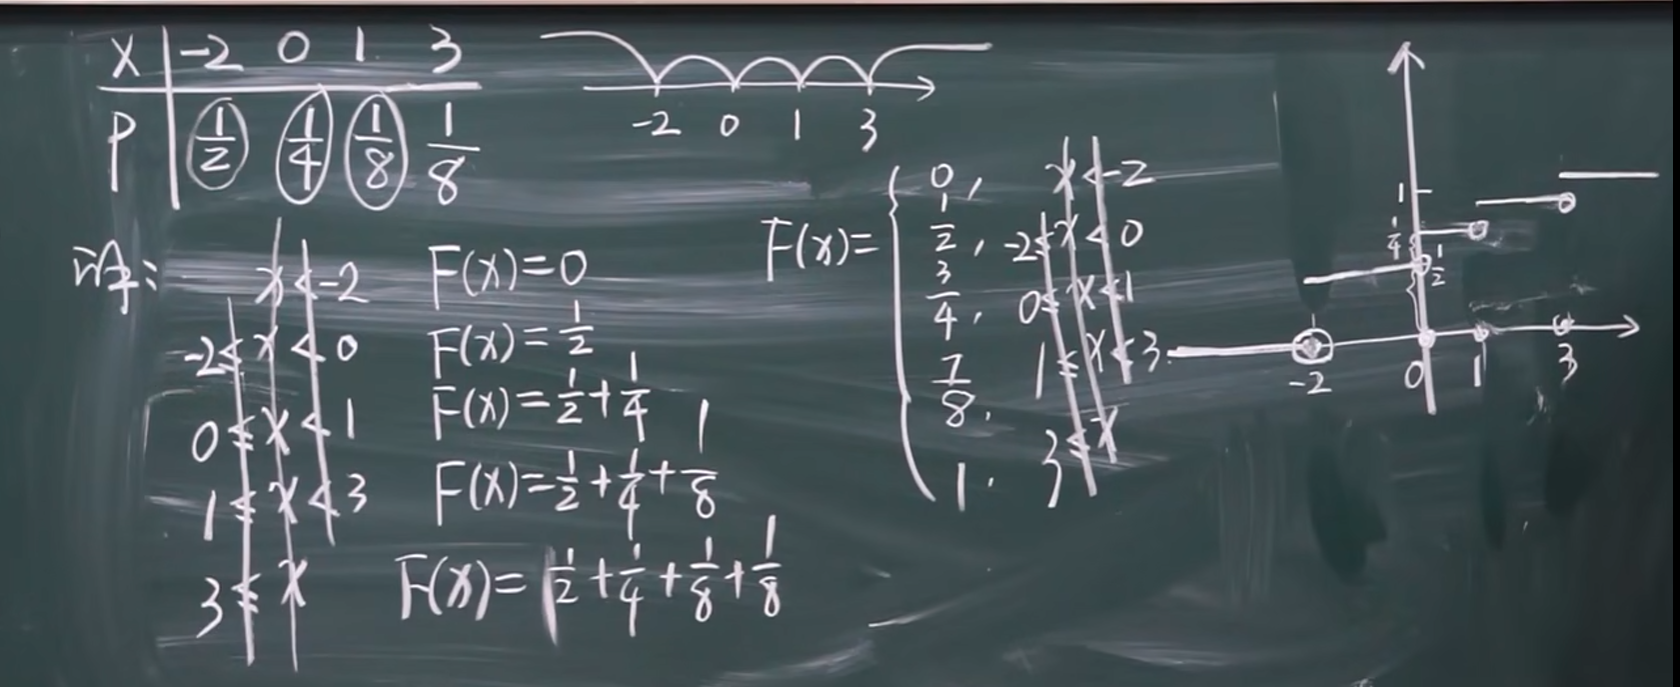 X | -2 0 1 3
P | 1/2 1/4 1/8 1/8
-2 0 1 3
解:
x < -2 F(x)=0
-2 ≤ x < 0 F(x)=1/2
0 ≤ x < 1 F(x)=1/2+1/4
1 ≤ x < 3 F(x)=1/2+1/4+1/8
3 ≤ x F(x)=1/2+1/4+1/8+1/8
F(x)= {
0, x < -2
1/2, -2 ≤ x < 0
3/4, 0 ≤ x < 1
7/8, 1 ≤ x < 3
1. 3 ≤ x
1
1/4
1/2
-2 0 1 3